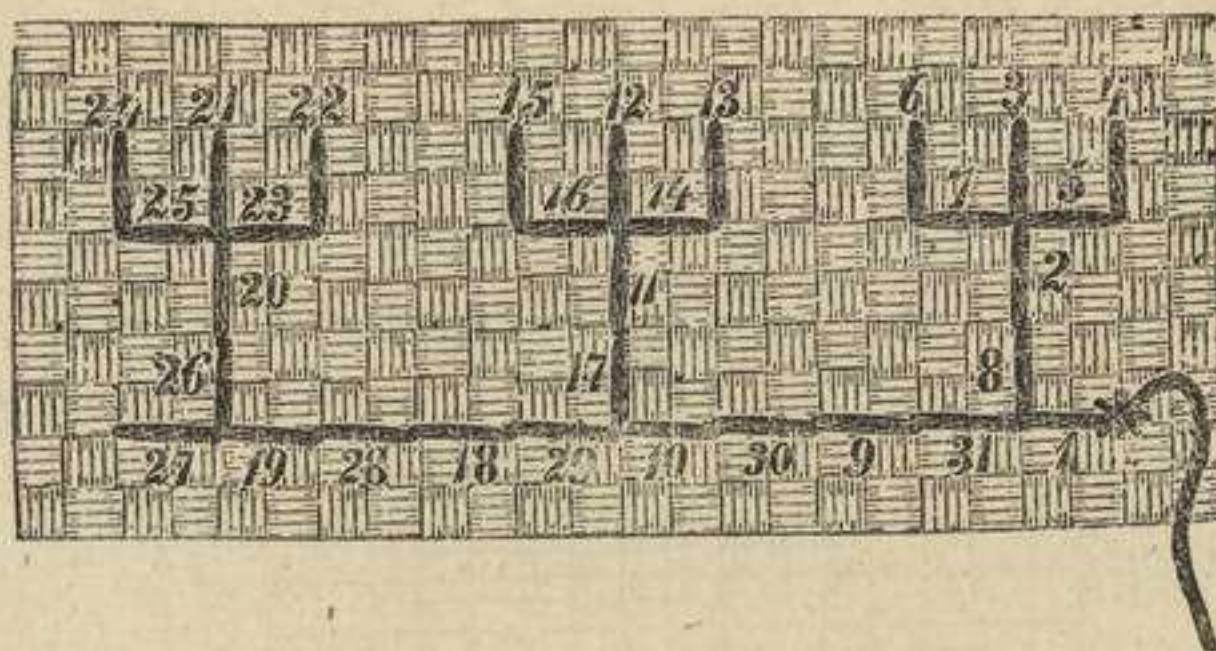 24 21 22 15 12 13 6 3 4
25 23 16 14 7 5
20 11 2
26 17 8
27 19 28 18 29 10 30 9 31 1